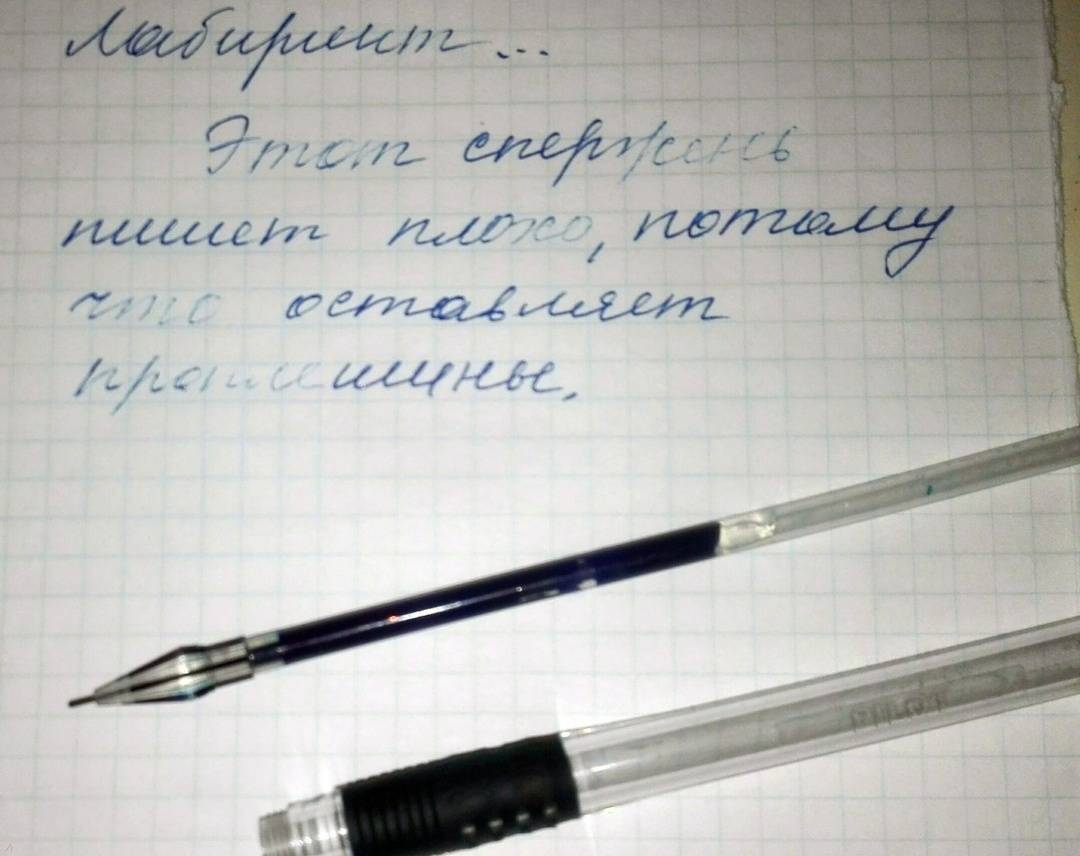 Лабиринт...
Этот стержень
пишет плохо, потому
что оставляет
проплешины.